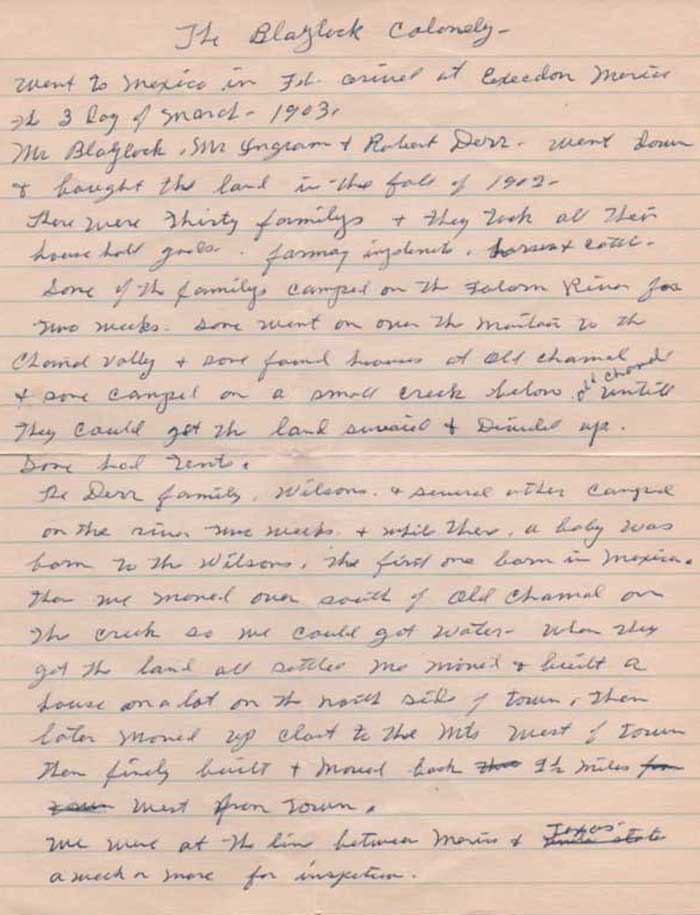 The Blaylock Colonely -
Went to Mexico in Feb. arived at Excedon Mexico
the 3 Day of March - 1903.
Mr Blaylock, Mr Yngram & Robert Derr. went down
& baught the land in the fall of 1902 -
There were Thirty familys & they Took all their
house hold goods. farming implements, horses & cattle -
Some of the familys camped on the River for
two weeks. Some went on over the Mountain to the
Chamal Vally & some found houses at Old Chamal
& some camped on a small creek below old Chamal untill
They could get the land survaied & Divided up.
Some had Tents.
The Derr family, Wilsons. & several other camped
on the river two weeks. & while there, a baby was
born to the Wilsons. the first one born in Mexico.
then we moved over south of Old Chamal on
the creek so we could get water - when they
got the land all settled we moved & built a
house on a lot on the north side of town, then
later moved up close to the Mts West of Town
then finely built & moved back 1½ miles
West from Town.
We were at the line between Mexico & Texas
a week or more for inspection.